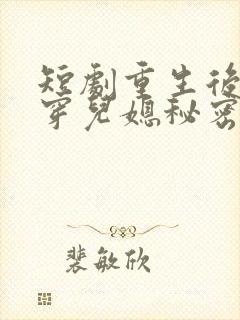 短劇重生後
穿兒媳秘密
裴敏欣